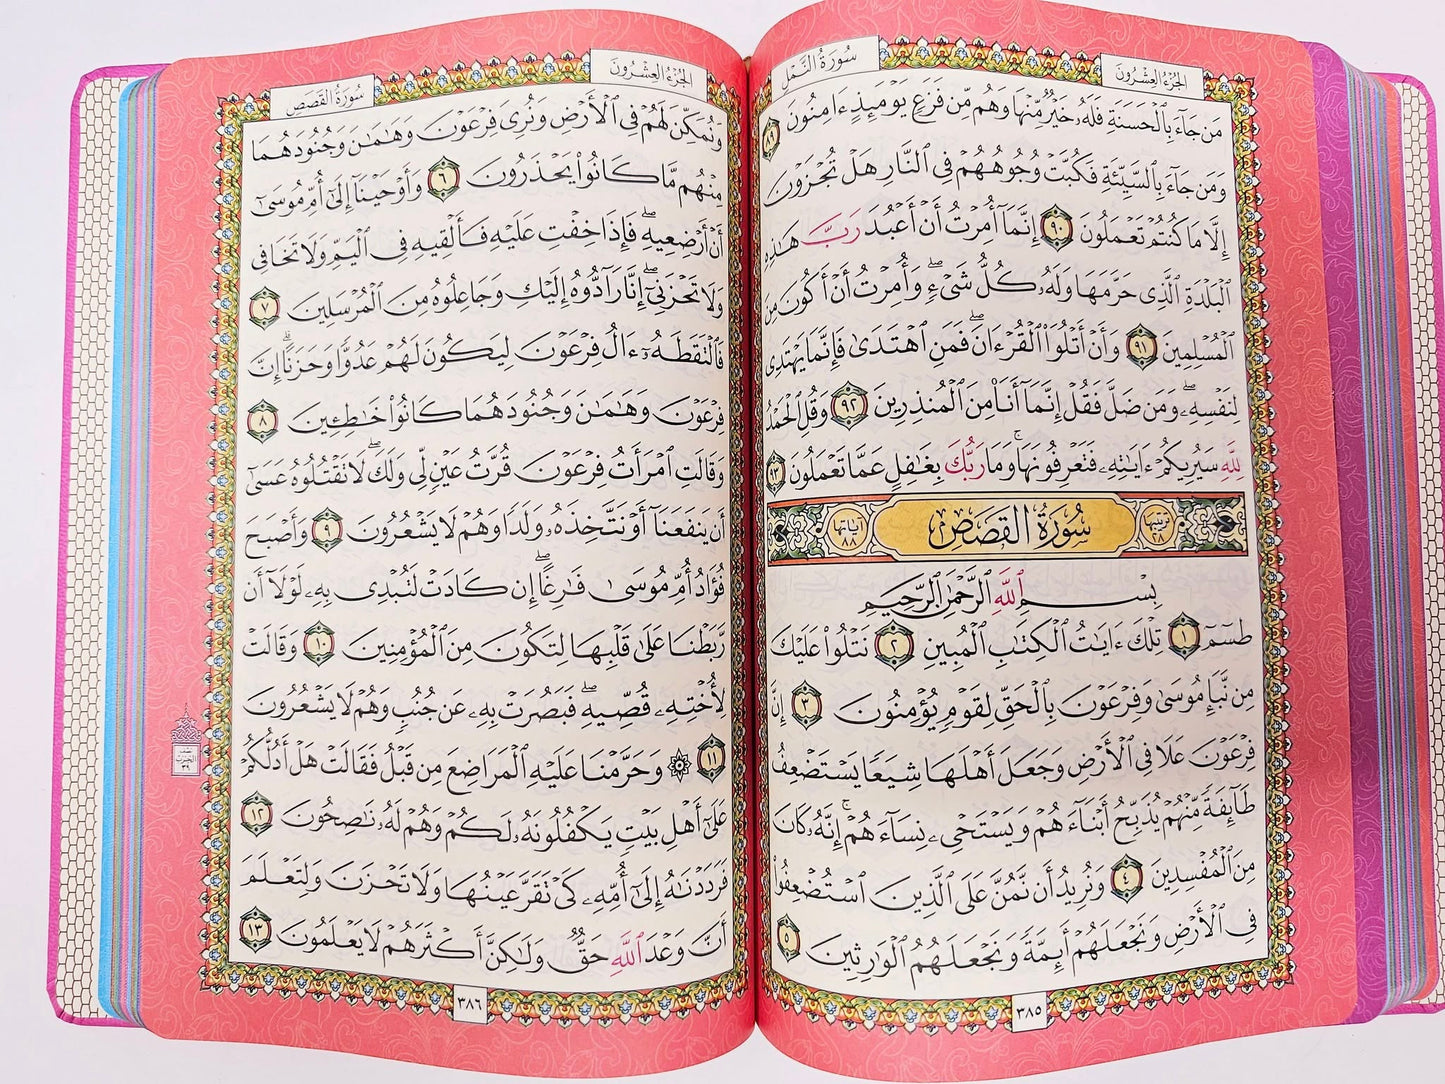 سُورَةُ النَّمْلِ
الجُزْءُ العِشْرُونَ
مَن جَآءَ بِٱلْحَسَنَةِ فَلَهُۥ خَيْرٌ مِّنْهَا وَهُم مِّن فَزَعٍ يَوْمَئِذٍ ءَامِنُونَ ٨٩
وَمَن جَآءَ بِٱلسَّيِّئَةِ فَكُبَّتْ وُجُوهُهُمْ فِى ٱلنَّارِ هَلْ تُجْزَوْنَ
إِلَّا مَا كُنتُمْ تَعْمَلُونَ ٩٠ إِنَّمَآ أُمِرْتُ أَنْ أَعْبُدَ رَبَّ هَٰذِهِ
ٱلْبَلْدَةِ ٱلَّذِى حَرَّمَهَا وَلَهُۥ كُلُّ شَىْءٍ ۖ وَأُمِرْتُ أَنْ أَكُونَ مِنَ
ٱلْمُسْلِمِينَ ٩١ وَأَنْ أَتْلُوَا۟ ٱلْقُرْءَانَ ۖ فَمَنِ ٱهْتَدَىٰ فَإِنَّمَا يَهْتَدِى
لِنَفْسِهِۦ ۖ وَمَن ضَلَّ فَقُلْ إِنَّمَآ أَنَا۠ مِنَ ٱلْمُنذِرِينَ ٩٢ وَقُلِ ٱلْحَمْدُ
لِلَّهِ سَيُرِيكُمْ ءَايَٰتِهِۦ فَتَعْرِفُونَهَا ۚ وَمَا رَبُّكَ بِغَٰفِلٍ عَمَّا تَعْمَلُونَ ٩٣
ترتيبها ٢٨ سُورَةُ القَصَصِ آياتها ٨٨
بِسْمِ ٱللَّهِ ٱلرَّحْمَٰنِ ٱلرَّحِيمِ
طسٓمٓ ١ تِلْكَ ءَايَٰتُ ٱلْكِتَٰبِ ٱلْمُبِينِ ٢ نَتْلُوا۟ عَلَيْكَ
مِن نَّبَإِ مُوسَىٰ وَفِرْعَوْنَ بِٱلْحَقِّ لِقَوْمٍ يُؤْمِنُونَ ٣ إِنَّ
فِرْعَوْنَ عَلَا فِى ٱلْأَرْضِ وَجَعَلَ أَهْلَهَا شِيَعًا يَسْتَضْعِفُ
طَآئِفَةً مِّنْهُمْ يُذَبِّحُ أَبْنَآءَهُمْ وَيَسْتَحْىِۦ نِسَآءَهُمْ ۚ إِنَّهُۥ كَانَ
مِنَ ٱلْمُفْسِدِينَ ٤ وَنُرِيدُ أَن نَّمُنَّ عَلَى ٱلَّذِينَ ٱسْتُضْعِفُوا۟
فِى ٱلْأَرْضِ وَنَجْعَلَهُمْ أَئِمَّةً وَنَجْعَلَهُمُ ٱلْوَٰرِثِينَ ٥
٣٨٥
الجُزْءُ العِشْرُونَ
سُورَةُ القَصَصِ
وَنُمَكِّنَ لَهُمْ فِى ٱلْأَرْضِ وَنُرِىَ فِرْعَوْنَ وَهَٰمَٰنَ وَجُنُودَهُمَا
مِنْهُم مَّا كَانُوا۟ يَحْذَرُونَ ٦ وَأَوْحَيْنَآ إِلَىٰٓ أُمِّ مُوسَىٰٓ
أَنْ أَرْضِعِيهِ ۖ فَإِذَا خِفْتِ عَلَيْهِ فَأَلْقِيهِ فِى ٱلْيَمِّ وَلَا تَخَافِى
وَلَا تَحْزَنِىٓ ۖ إِنَّا رَآدُّوهُ إِلَيْكِ وَجَاعِلُوهُ مِنَ ٱلْمُرْسَلِينَ ٧
فَٱلْتَقَطَهُۥٓ ءَالُ فِرْعَوْنَ لِيَكُونَ لَهُمْ عَدُوًّا وَحَزَنًا ۗ إِنَّ
فِرْعَوْنَ وَهَٰمَٰنَ وَجُنُودَهُمَا كَانُوا۟ خَٰطِـِٔينَ ٨
وَقَالَتِ ٱمْرَأَتُ فِرْعَوْنَ قُرَّتُ عَيْنٍ لِّى وَلَكَ ۖ لَا تَقْتُلُوهُ عَسَىٰٓ
أَن يَنفَعَنَآ أَوْ نَتَّخِذَهُۥ وَلَدًا وَهُمْ لَا يَشْعُرُونَ ٩ وَأَصْبَحَ
فُؤَادُ أُمِّ مُوسَىٰ فَٰرِغًا ۖ إِن كَادَتْ لَتُبْدِى بِهِۦ لَوْلَآ أَن
رَّبَطْنَا عَلَىٰ قَلْبِهَا لِتَكُونَ مِنَ ٱلْمُؤْمِنِينَ ١٠ وَقَالَتْ
لِأُخْتِهِۦ قُصِّيهِ ۖ فَبَصُرَتْ بِهِۦ عَن جُنُبٍ وَهُمْ لَا يَشْعُرُونَ
١١ ۞ وَحَرَّمْنَا عَلَيْهِ ٱلْمَرَاضِعَ مِن قَبْلُ فَقَالَتْ هَلْ أَدُلُّكُمْ
عَلَىٰٓ أَهْلِ بَيْتٍ يَكْفُلُونَهُۥ لَكُمْ وَهُمْ لَهُۥ نَٰصِحُونَ ١٢
فَرَدَدْنَٰهُ إِلَىٰٓ أُمِّهِۦ كَىْ تَقَرَّ عَيْنُهَا وَلَا تَحْزَنَ وَلِتَعْلَمَ
أَنَّ وَعْدَ ٱللَّهِ حَقٌّ وَلَٰكِنَّ أَكْثَرَهُمْ لَا يَعْلَمُونَ ١٣
نصف
الحزب
٣٩
٣٨٦